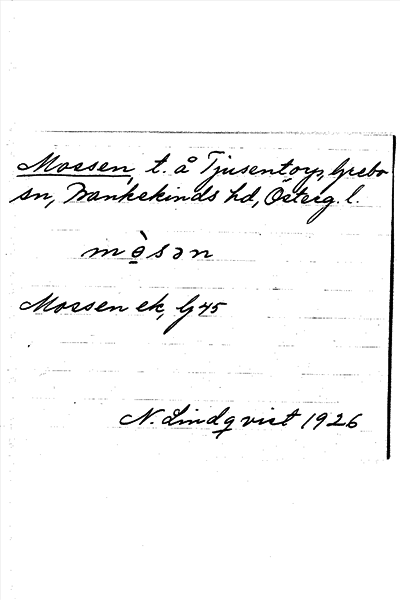 Mossen, t. å Tjusentorp, Grebo
sn, Bankekinds hd, Österg. l.
mòsən
Mossen ek, G 45
N. Lindqvist 1926